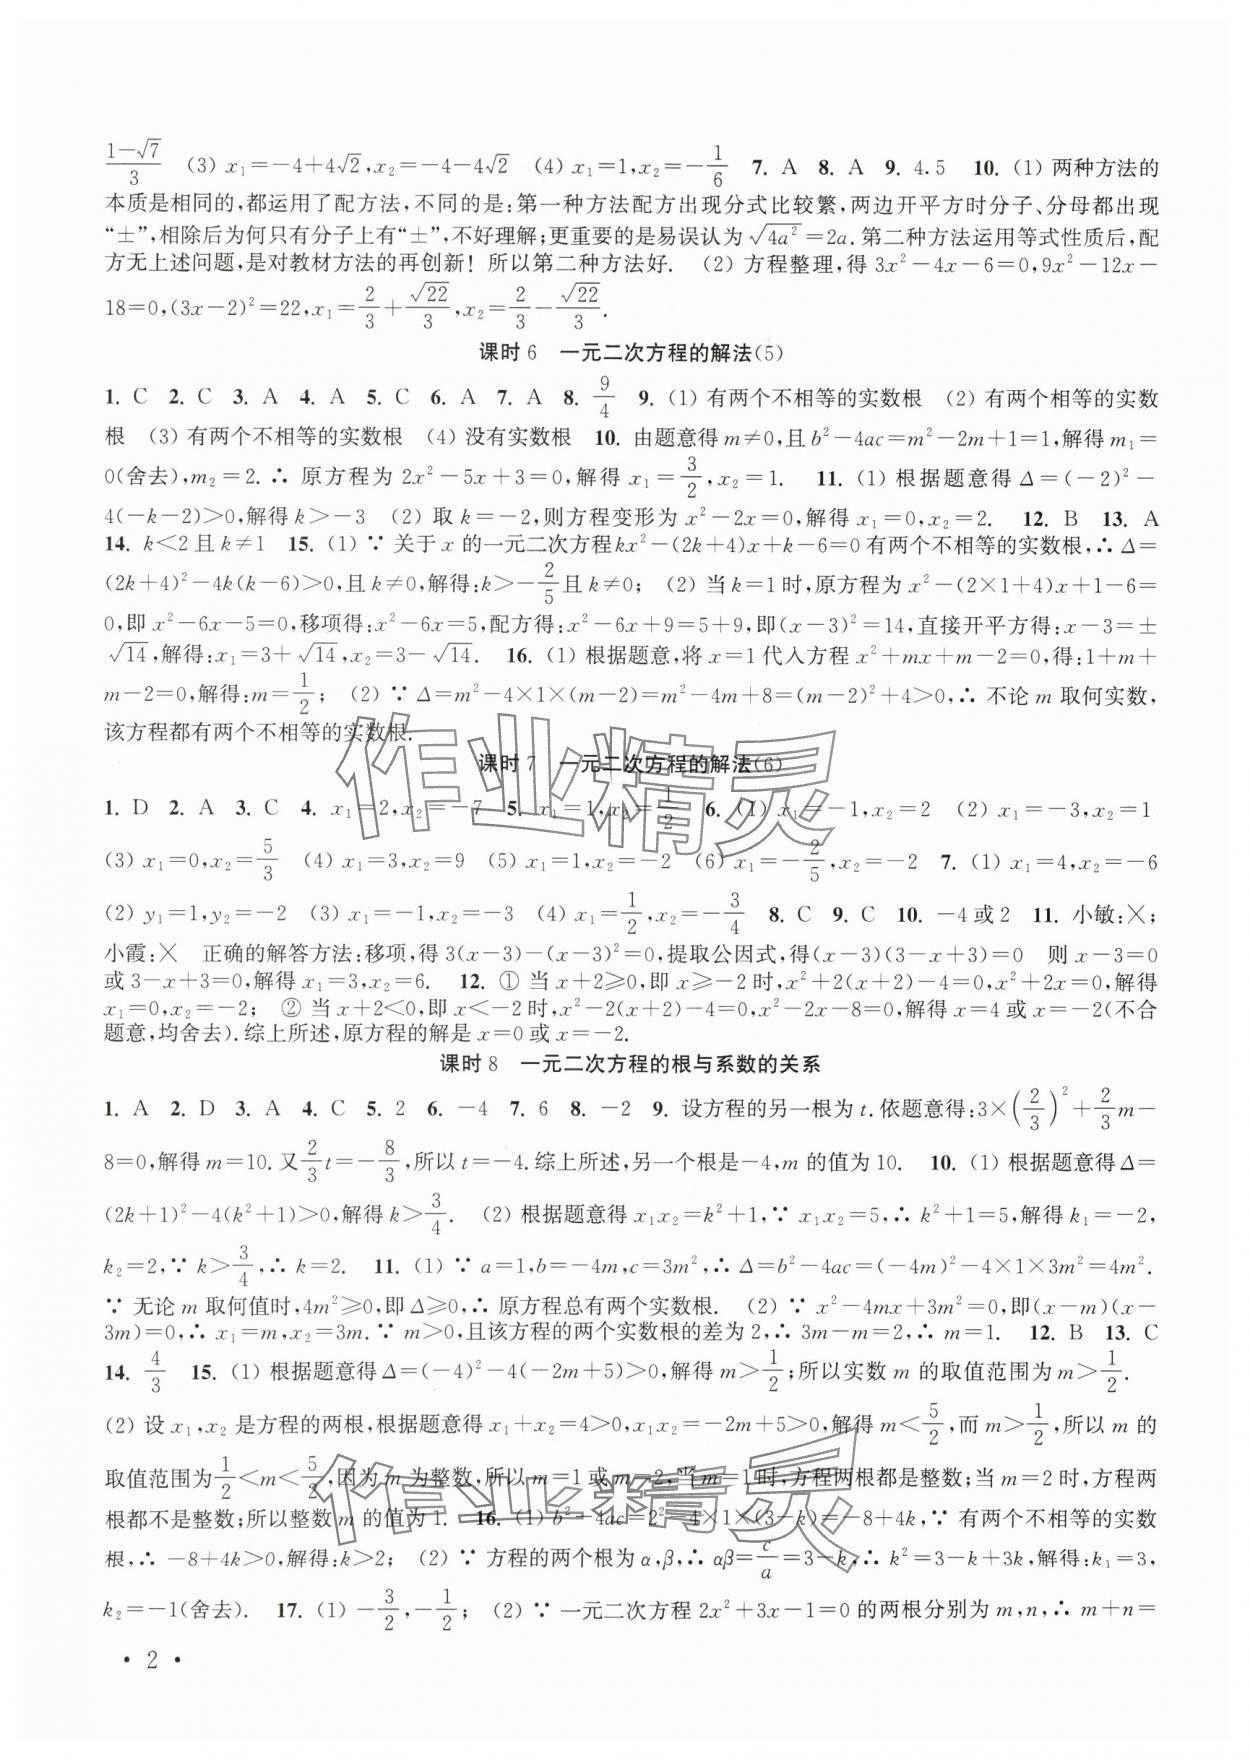 (1-√7)/3 (3) x₁=-4+4√2,x₂=-4-4√2 (4) x₁=1,x₂=-1/6 7. A 8. A 9. 4.5 10. (1) 两种方法的
本质是相同的,都运用了配方法,不同的是:第一种方法配方出现分式比较繁,两边开平方时分子、分母都出现
“±”,相除后为何只有分子上有“±”,不好理解;更重要的是易误认为√(4a²)=2a.第二种方法运用等式性质后,配
方无上述问题,是对教材方法的再创新!所以第二种方法好. (2) 方程整理,得 3x²-4x-6=0,9x²-12x-
18=0,(3x-2)²=22,x₁=2/3+√22/3,x₂=2/3-√22/3.
课时 6 一元二次方程的解法(5)
1. C 2. C 3. A 4. A 5. C 6. A 7. A 8. 9/4 9. (1) 有两个不相等的实数根 (2) 有两个相等的实数
根 (3) 有两个不相等的实数根 (4) 没有实数根 10. 由题意得 m≠0,且 b²-4ac=m²-2m+1=1,解得 m₁=
0(舍去),m₂=2.∴ 原方程为 2x²-5x+3=0,解得 x₁=3/2,x₂=1. 11. (1) 根据题意得 Δ=(-2)²-
4(-k-2)>0,解得 k>-3 (2) 取 k=-2,则方程变形为 x²-2x=0,解得 x₁=0,x₂=2. 12. B 13. A
14. k<2 且 k≠1 15. (1) ∵ 关于 x 的一元二次方程 kx²-(2k+4)x+k-6=0 有两个不相等的实数根,∴ Δ=
(2k+4)²-4k(k-6)>0,且 k≠0,解得:k>-2/5且 k≠0; (2) 当 k=1 时,原方程为 x²-(2×1+4)x+1-6=
0,即 x²-6x-5=0,移项得:x²-6x=5,配方得:x²-6x+9=5+9,即(x-3)²=14,直接开平方得:x-3=±
√14,解得:x₁=3+√14,x₂=3-√14. 16. (1) 根据题意,将 x=1 代入方程 x²+mx+m-2=0,得:1+m+
m-2=0,解得:m=1/2; (2) ∵ Δ=m²-4×1×(m-2)=m²-4m+8=(m-2)²+4>0,∴ 不论 m 取何实数,
该方程都有两个不相等的实数根.
课时 7 一元二次方程的解法(6)
1. D 2. A 3. C 4. x₁=2,x₂=-7 5. x₁=1,x₂=1/2 6. (1) x₁=-1,x₂=2 (2) x₁=-3,x₂=1
(3) x₁=0,x₂=5/3 (4) x₁=3,x₂=9 (5) x₁=1,x₂=-2 (6) x₁=-2/5,x₂=-2 7. (1) x₁=4,x₂=-6
(2) y₁=1,y₂=-2 (3) x₁=-1,x₂=-3 (4) x₁=1/2,x₂=-3/4 8. C 9. C 10. -4 或 2 11. 小敏:×;
小霞:× 正确的解答方法:移项,得 3(x-3)-(x-3)²=0,提取公因式,得(x-3)(3-x+3)=0 则 x-3=0
或 3-x+3=0,解得 x₁=3,x₂=6. 12. ① 当 x+2≥0,即 x≥-2 时,x²+2(x+2)-4=0,x²+2x=0,解得
x₁=0,x₂=-2; ② 当 x+2<0,即 x<-2 时,x²-2(x+2)-4=0,x²-2x-8=0,解得 x=4 或 x=-2(不合
题意,均舍去).综上所述,原方程的解是 x=0 或 x=-2.
课时 8 一元二次方程的根与系数的关系
1. A 2. D 3. A 4. C 5. 2 6. -4 7. 6 8. -2 9. 设方程的另一根为 t.依题意得:3×(2/3)²+2/3m-
8=0,解得 m=10.又2/3t=-8/3,所以 t=-4.综上所述,另一个根是-4,m 的值为 10. 10. (1) 根据题意得 Δ=
(2k+1)²-4(k²+1)>0,解得 k>3/4. (2) 根据题意得 x₁x₂=k²+1,∵ x₁x₂=5,∴ k²+1=5,解得 k₁=-2,
k₂=2,∵ k>3/4,∴ k=2. 11. (1) ∵ a=1,b=-4m,c=3m²,∴ Δ=b²-4ac=(-4m)²-4×1×3m²=4m².
∵ 无论 m 取何值时,4m²≥0,即 Δ≥0,∴ 原方程总有两个实数根. (2) ∵ x²-4mx+3m²=0,即(x-m)(x-
3m)=0,∴ x₁=m,x₂=3m.∵ m>0,且该方程的两个实数根的差为 2,∴ 3m-m=2,∴ m=1. 12. B 13. C
14. 4/3 15. (1) 根据题意得 Δ=(-4)²-4(-2m+5)>0,解得 m>1/2;所以实数 m 的取值范围为 m>1/2.
(2) 设 x₁,x₂ 是方程的两根,根据题意得 x₁+x₂=4>0,x₁x₂=-2m+5>0,解得 m<5/2,而 m>1/2,所以 m 的
取值范围为1/2<m<5/2,因为 m 为整数,所以 m=1 或 m=2,当 m=1 时,方程两根都是整数;当 m=2 时,方程两
根都不是整数;所以整数 m 的值为 1. 16. (1) b²-4ac=2²-4×1×(3-k)=-8+4k,∵ 有两个不相等的实数
根,∴ -8+4k>0,解得:k>2; (2) ∵ 方程的两个根为 α,β,∴ αβ=c/a=3-k,∴ k²=3-k+3k,解得:k₁=3,
k₂=-1(舍去). 17. (1) -3/2,-1/2; (2) ∵ 一元二次方程 2x²+3x-1=0 的两根分别为 m,n,∴ m+n=
· 2 ·
作业精灵
作业精灵